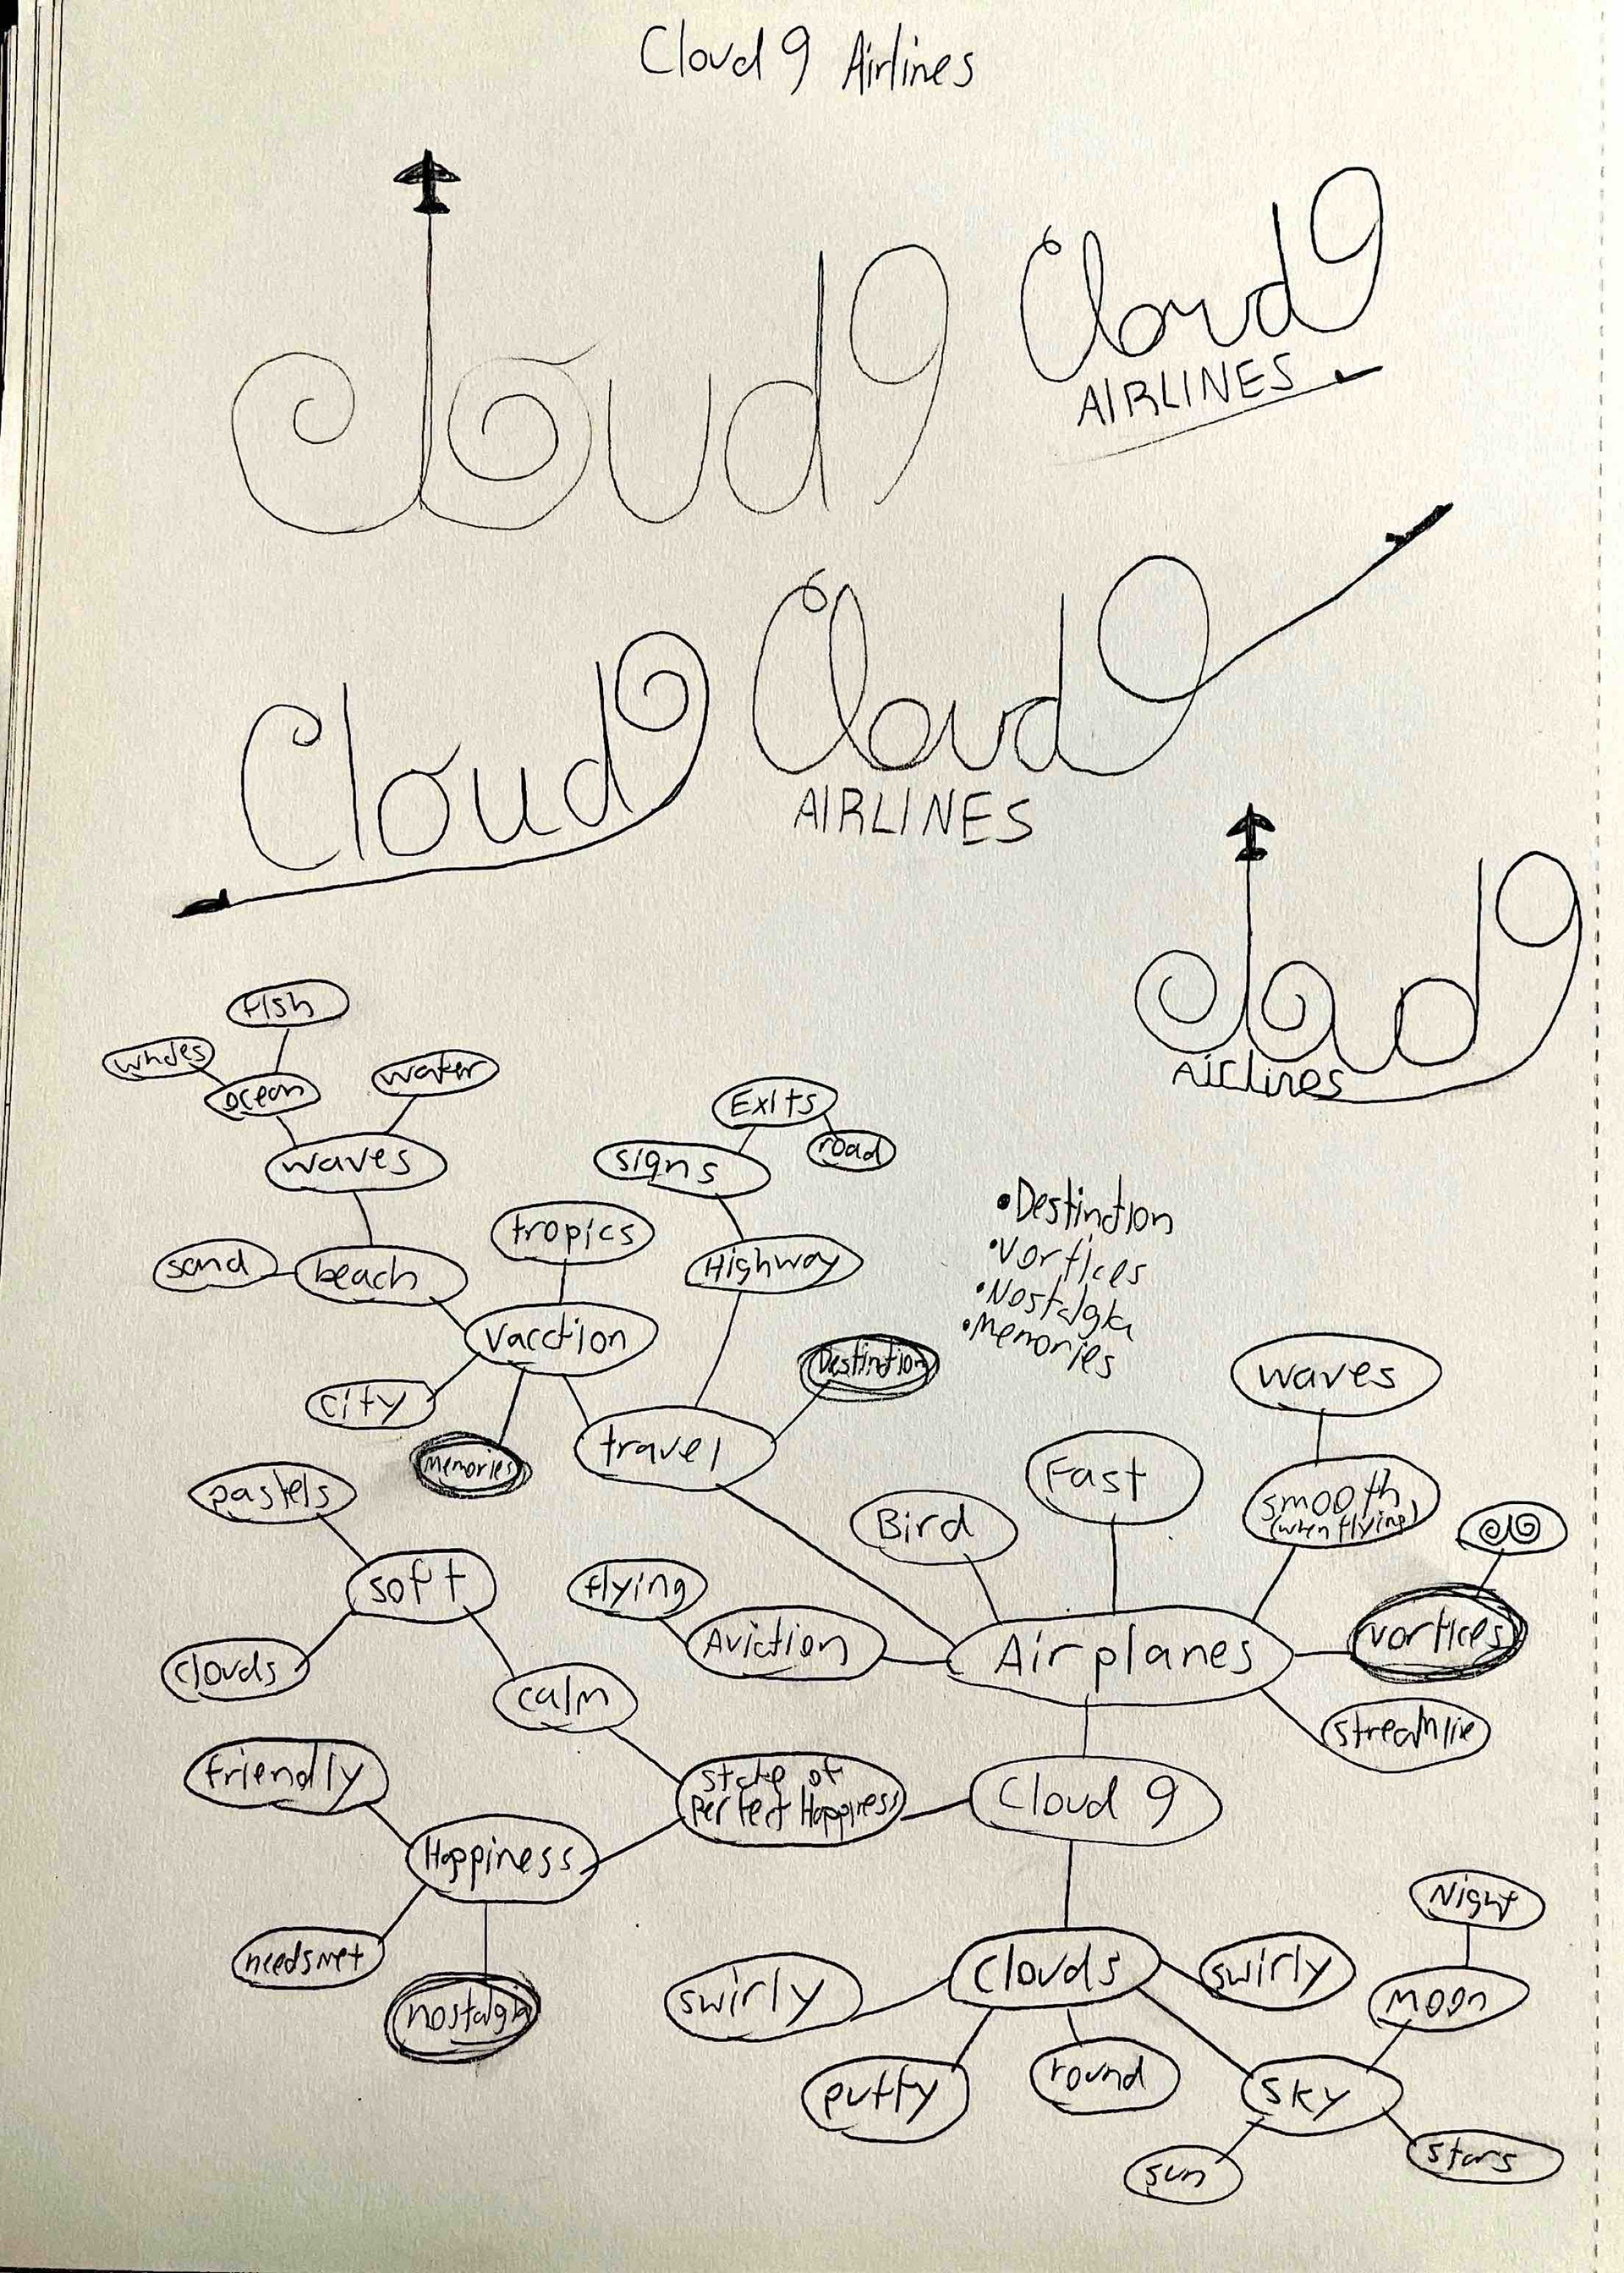 Cloud 9 Airlines
Cloud 9
Cloud 9
AIRLINES
Cloud 9
Cloud 9
AIRLINES
Cloud 9
Airlines
fish
whales
ocean
water
waves
Exits
road
signs
sand
beach
tropics
Highway
• Destination
• Vortices
• Nostalgia
• Memories
vacation
city
memories
travel
Destination
waves
Fast
smooth
(when flying)
Bird
pastels
soft
flying
Aviation
Airplanes
vortices
streamlie
clouds
calm
friendly
state of
perfect Happiness
Cloud 9
Happiness
needs met
nostalgia
Night
clouds
swirly
swirly
moon
puffy
round
sky
sun
stars